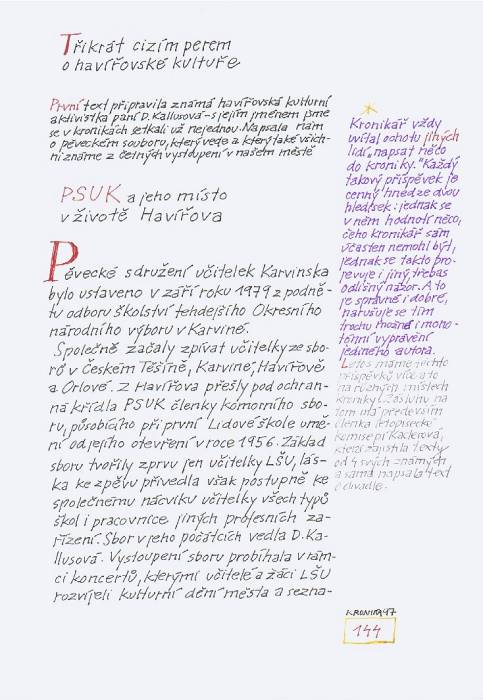 Třikrát cizím perem
o havířovské kultuře
První text připravila známá havířovská kulturní
aktivistka paní D. Kallusová – s jejím jménem jsme
se v kronikách setkali už nejednou. Napsala nám
o pěveckém souboru, který vede a který také všich-
ni známe z četných vystoupení v našem městě
PSUK a jeho místo
v životě Havířova
Pěvecké sdružení učitelek Karvinska
bylo ustaveno v září roku 1979 z podně-
tu odboru školství tehdejšího Okresního
národního výboru v Karviné.
Společně začaly zpívat učitelky ze sbo-
rů v Českém Těšíně, Karviné, Havířově
a Orlové. Z Havířova přešly pod ochran-
ná křídla PSUK členky komorního sbo-
ru, působícího při první Lidové škole umě-
ní od jejího otevření v roce 1956. Základ
sboru tvořily zprvu jen učitelky LŠU, lás-
ka ke zpěvu přivedla však postupně ke
společnému nácviku učitelky všech typů
škol i pracovnice jiných profesních za-
řízení. Sbor v jeho počátcích vedla D. Ka-
llusová. Vystoupení sboru probíhala v rám-
ci koncertů, kterými učitelé a žáci LŠU
rozvíjeli kulturní dění města a sezna-
Kronikář vždy
uvítal ochotu jiných
lidí, napsat něco
do kroniky. Každý
takový příspěvek je
cenný hned ze dvou
hledisek: jednak se
v něm hodnotí něco,
čeho kronikář sám
účasten nemohl být,
jednak se takto pro-
jevuje i jiný, třebas
odlišný názor. A to
je správné i dobré,
narušuje se tím
trochu možná i mono-
tónní vyprávění
jediného autora.
Letos máme těchto
příspěvků více a to
na různých místech
kroniky. Zásluhu na
tom má především
členka letopisecké
komise pí Kaderová,
která zajistila texty
od svých známých
a sama napsala text
o divadle.
KRONIKA 97
144